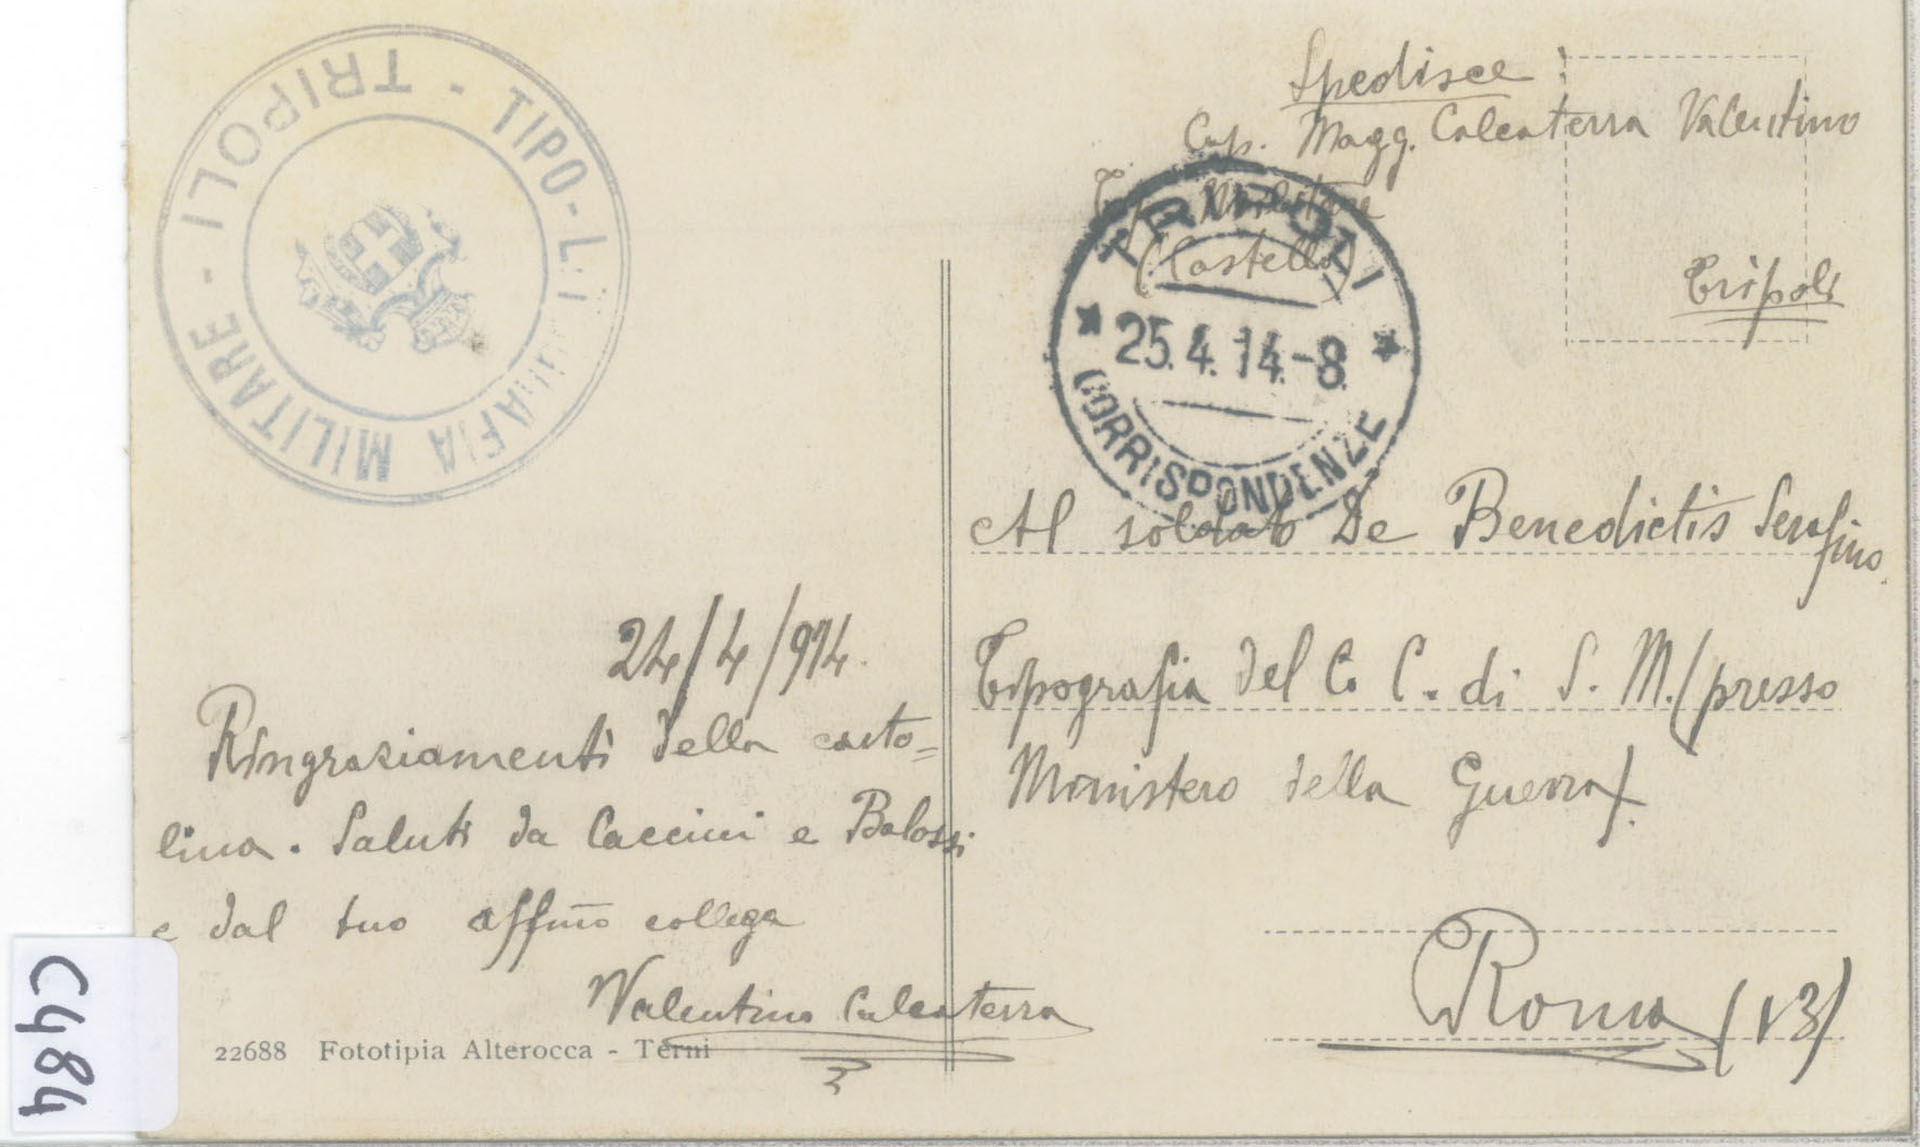 TIPO-LITOGRAFIA MILITARE - TRIPOLI - TRIPOLI
Spedisce:
Cap. Magg. Calcaterra Valentino
(Castello)
Tripoli
TRIPOLI
25.4.14.-8.
CORRISPONDENZE
Al soldato De Benedictis Serafino
Tipografia del C. C. di S. M. (presso
Ministero della Guerra).
Roma (13)
24/4/914.
Ringraziamenti della carto=
lina. Saluti da Caccini e Balossi
e dal tuo affmo collega
Valentino Calcaterra
22688 Fototipia Alterocca - Terni
C484